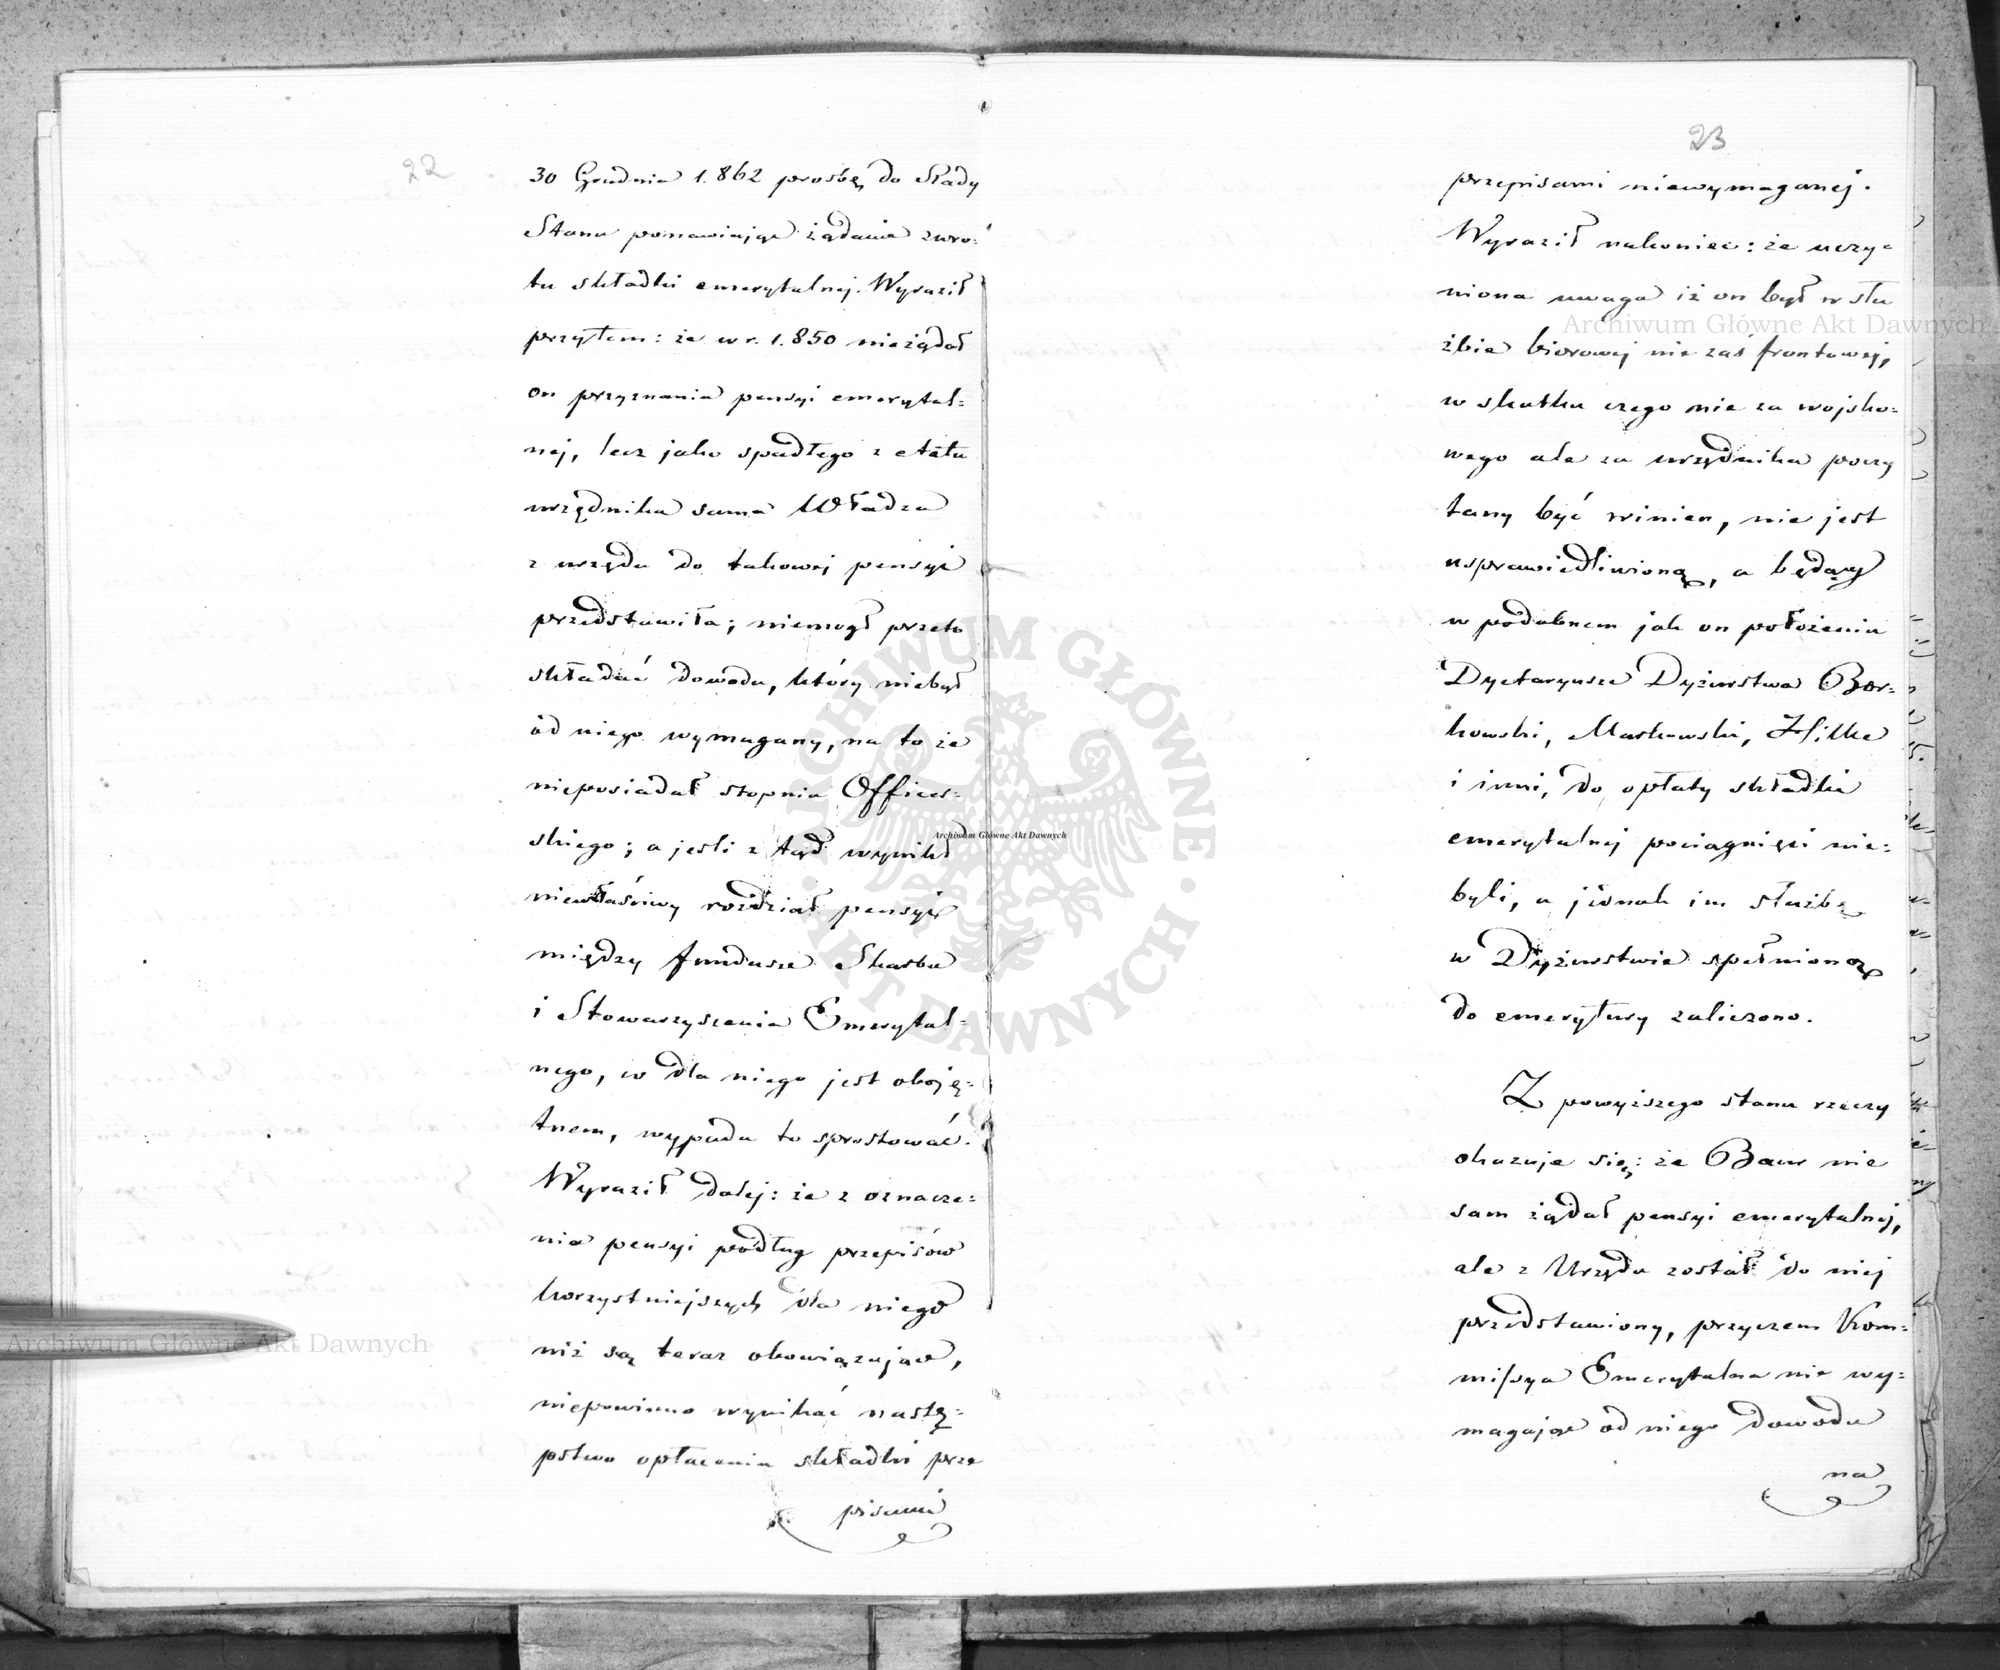 22
30 Grudnia 1.862 prosbę do Rady
Stanu ponawiając żądanie zwro:
tu składki emerytalnej. Wyraził
przytem: że w r. 1.850 nieżądał
on przyznania pensyi emerytal:
nej, lecz jako spadłego z etatu
urzędnika sama Władza
z urzędu do takowej pensyi
przedstawiła; niemogł przeto
składać dowodu, który niebył
od niego wymagany, na to że
nieposiadał stopnia Officer:
skiego; a jesli z tąd wynikł
niewłaściwy rozdział pensyi
między fundusze Skarbu
i Stowarzyszenia Emerytal:
nego, co dla niego jest oboję:
tnem, wypada to sprostować.
Wyraził dalej: że z oznacze:
nia pensyi podług przepisów
korzystniejszych dla niego
niż są teraz obowiązujące,
niepowinno wynikać nastę:
pstwo opłacenia składki prze
pisami
23
przepisami niewymaganej.
Wyraził nakoniec: że uczy:
niona uwaga iż on był w słu
żbie biorowej nie zaś frontowej,
w skutku czego nie za wojsko:
wego ale za urzędnika poczy
tany być winien, nie jest
usprawiedliwioną, a będący
w podobnem jak on położeniu
Dyetaryusze Dyżurstwa Bor:
kowski, Markowski, Hilke
i inni, do opłaty składki
emerytalnej pociągnięci nie:
byli, a jednak im służbę
w Dyżurstwie spełnioną
do emerytury zaliczono.
Z powyższego stanu rzeczy
okazuje się: że Baur nie
sam żądał pensyi emerytalnej,
ale z Urzędu został do niej
przedstawiony, przyczem Kom:
missya Emerytalna nie wy:
magając od niego dowodu
na
Archiwum Główne Akt Dawnych
Archiwum Główne Akt Dawnych
Archiwum Główne Akt Dawnych
ARCHIWUM GŁÓWNE
AKT DAWNYCH